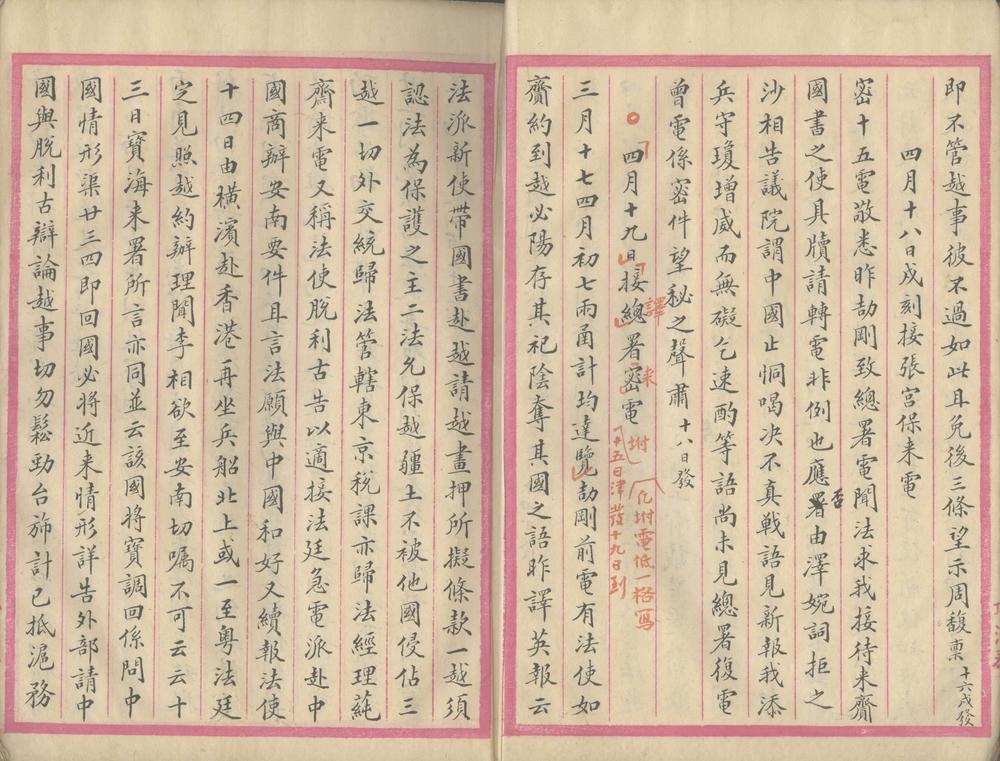 即不管越事彼不過如此且免後三條望示周馥稟十六戌發
四月十八日戌刻接張宮保来電
密十五電敬悉昨劼剛致總署電聞法求我接待未齎
國書之使具牘請轉電非例也應否署由澤婉詞拒之
沙相告議院謂中國止恫喝决不真戦語見新報我添
兵守瓊增威而無礙乞速酌等語尚未見總署復電
曾電係密件望秘之聲肅十八日發
四月十九日接總署密電
譯
来
坿
凡坿電低一格寫
十五日津發十九日到
三月十七四月初七兩函計均達覽劼剛前電有法使如
齎約到越必陽存其祀陰奪其國之語昨譯英報云
法派新使帶國書赴越請越畫押所擬條款一越須
認法為保護之主二法允保越疆土不被他國侵佔三
越一切外交統歸法管轄東京税課亦歸法經理蒓
齋来電又稱法使脫利古告以適接法廷急電派赴中
國商辦安南要件且言法願與中國和好又續報法使
十四日由橫濱赴香港再坐兵船北上或一至粤法廷
定見照越約辦理聞李相欲至安南切囑不可云云十
三日寶海来署所言亦同並云該國將寶調回係問中
國情形渠廿三四即回國必將近来情形詳告外部請中
國與脫利古辯論越事切勿鬆勁台斾計已抵滬務